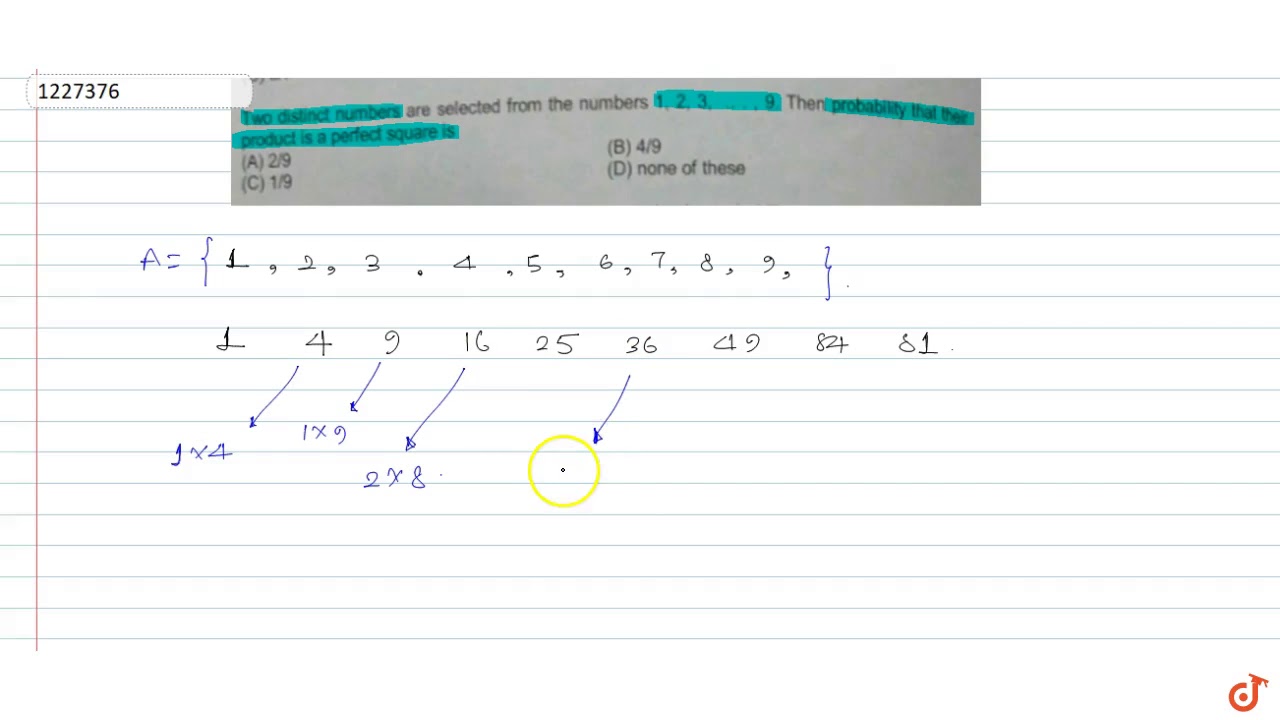 1227376
Two distinct numbers are selected from the numbers 1, 2, 3, . . . , 9. Then probability that their
product is a perfect square is
(A) 2/9 (B) 4/9
(C) 1/9 (D) none of these
A = { 1 , 2 , 3 . 4 , 5 , 6 , 7 , 8 , 9 , } .
1 4 9 16 25 36 49 84 81 .
1 × 4 1 × 9
2 × 8 .
d